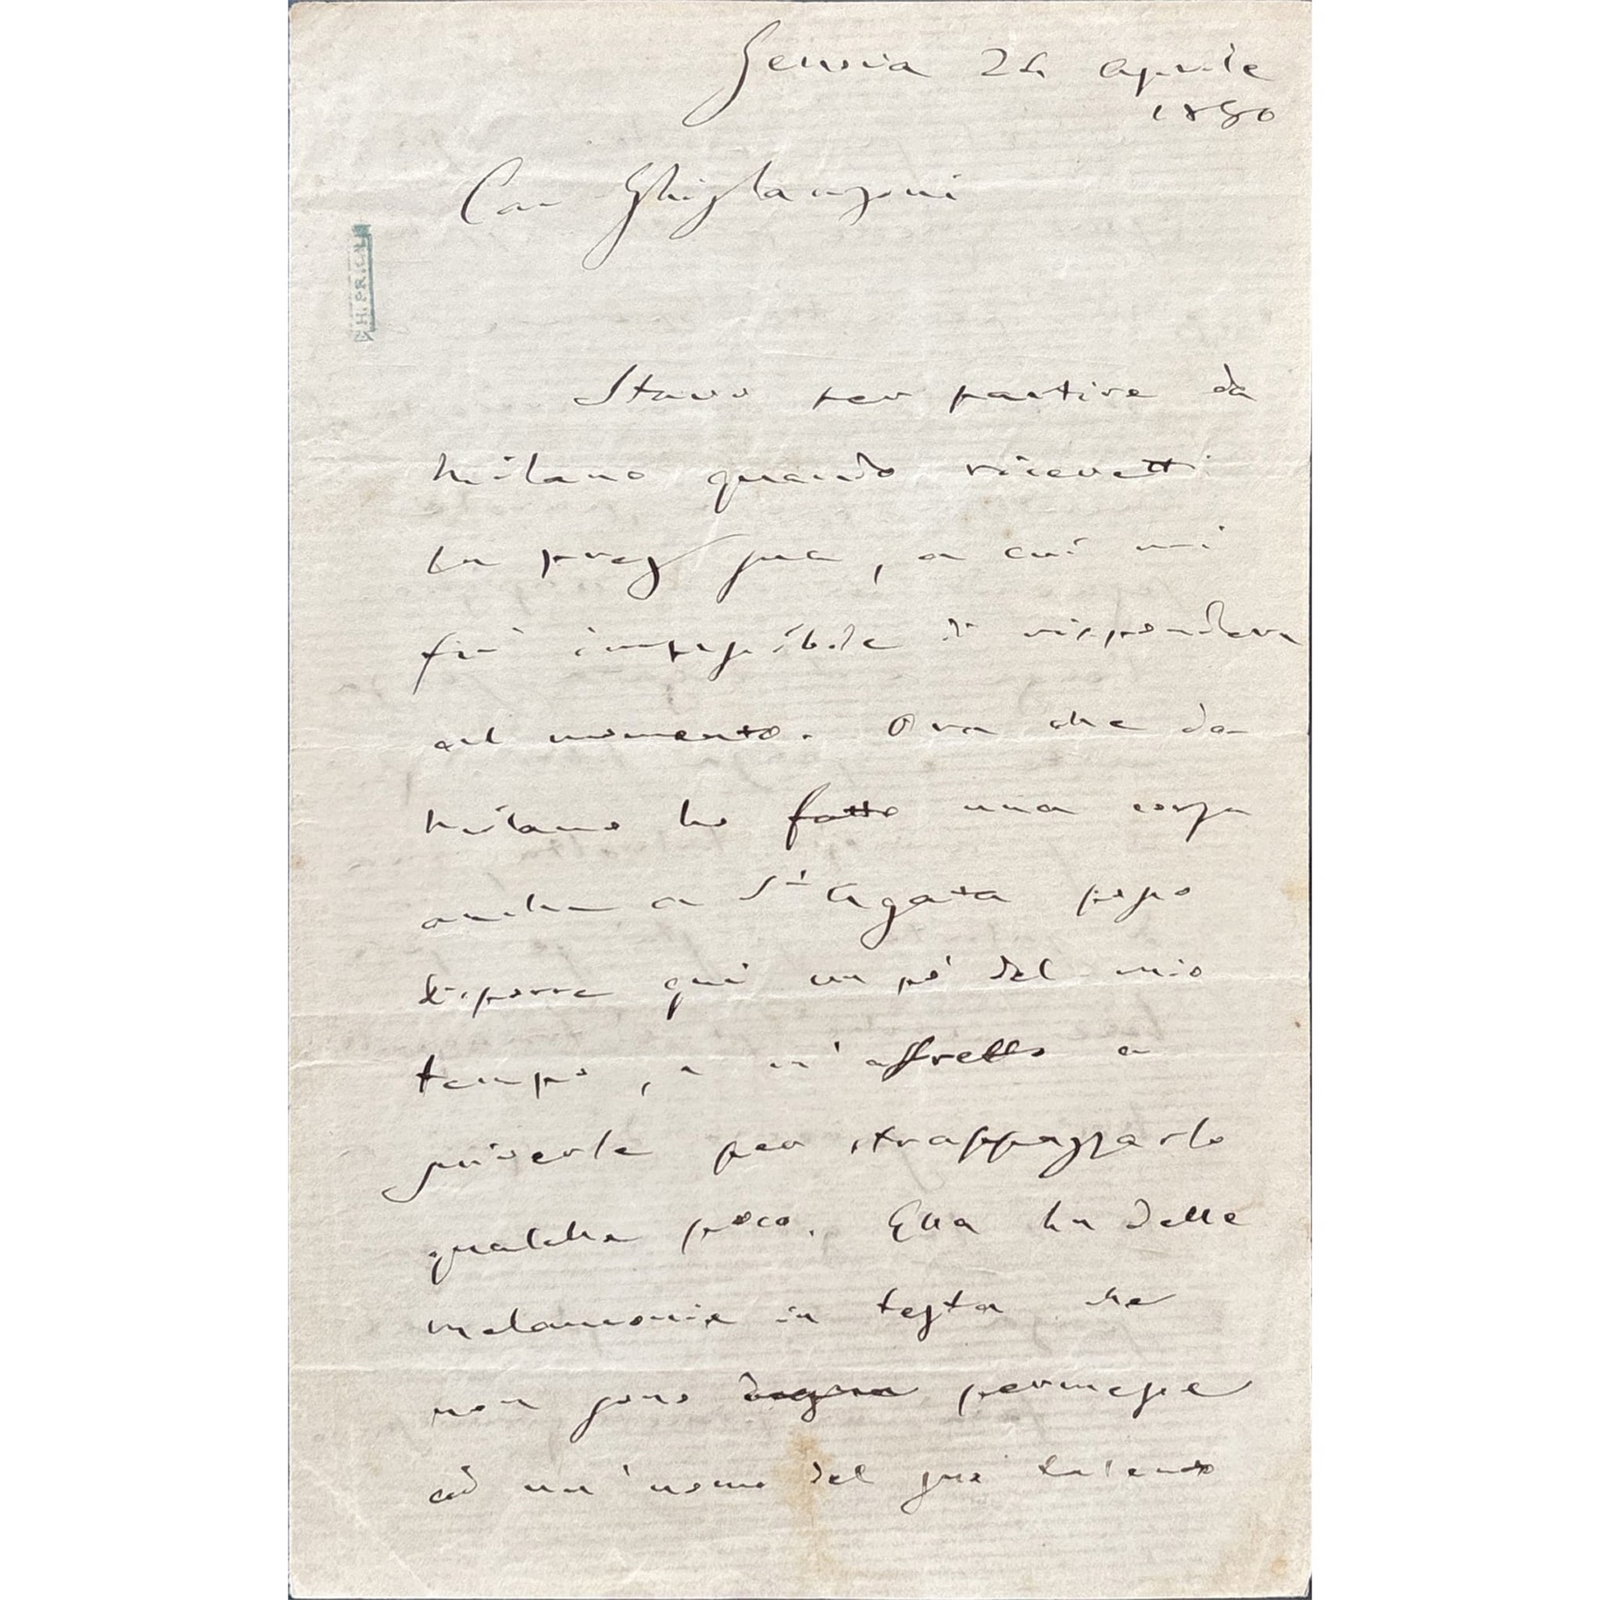 Genova 24 aprile
1880
Car Ghislanzoni
Stavo per partire da
Milano quando ricevetti
la preg sua, a cui mi
fu impossibile di rispondere
al momento. Ora che da
Milano ho fatto una corsa
anche a St Agata posso
disporre qui un po' del mio
tempo, e m'affretto a
scriverle per strappazzarlo
qualche poco. Ella ha delle
melanconie in testa che
non sono permesse
ad un'uomo del suo talento